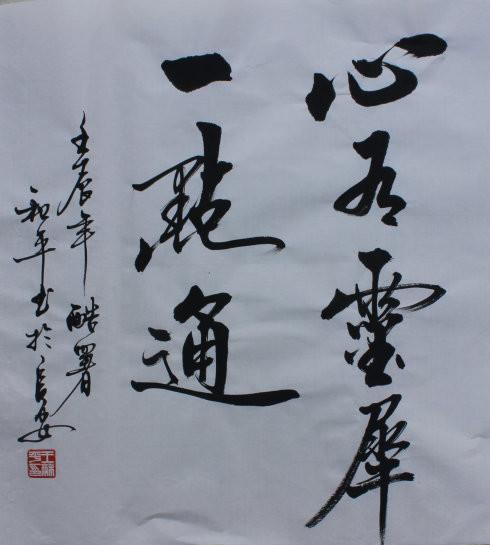 心有靈犀
一點通
壬辰年酷署
和平书於長安